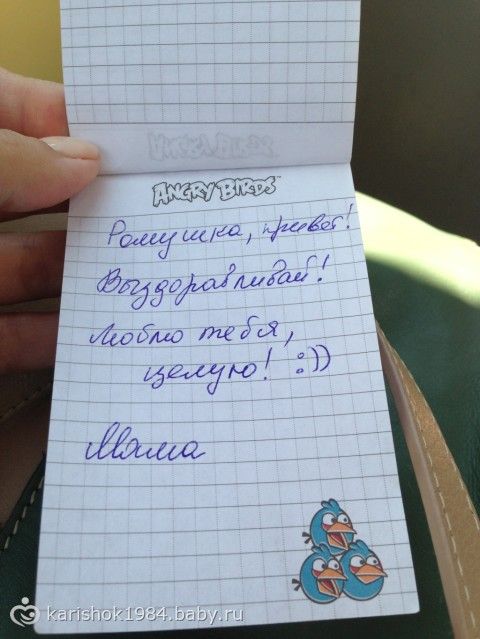 ANGRY BIRDS
Ромушка, привет!
Выздоравливай!
Люблю тебя,
целую! :))
Мама
karishok1984.baby.ru